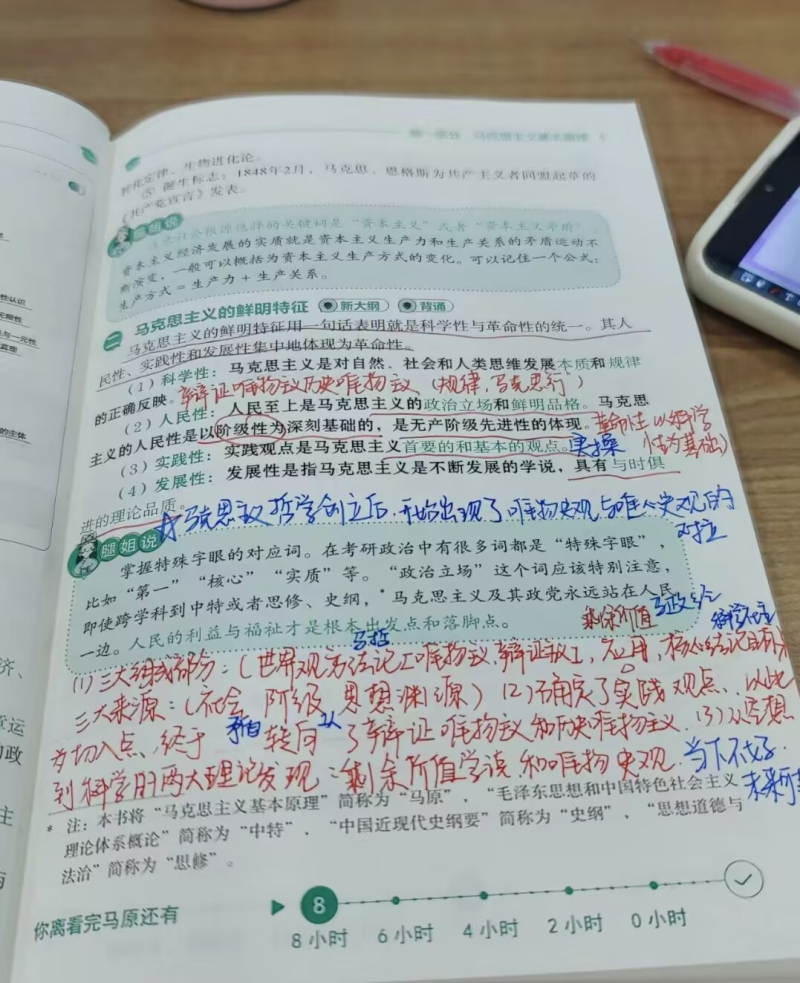 第一部分 马克思主义基本原理
转化定律、生物进化论。
⑤ 诞生标志：1848年2月，马克思、恩格斯为共产主义者同盟起草的
《共产党宣言》发表。
腿姐说
经济社会根源选择的关键词是“资本主义”或者“资本主义矛盾”，
资本主义经济发展的实质就是资本主义生产力和生产关系的矛盾运动不
断演变，一般可以概括为资本主义生产方式的变化。可以记住一个公式：
生产方式＝生产力＋生产关系。
二 马克思主义的鲜明特征 新大纲 背诵
马克思主义的鲜明特征用一句话表明就是科学性与革命性的统一。其人
民性、实践性和发展性集中地体现为革命性。
（1）科学性：马克思主义是对自然、社会和人类思维发展本质和规律
的正确反映。辩证唯物主义历史唯物主义（规律，马克思行）
（2）人民性：人民至上是马克思主义的政治立场和鲜明品格。马克思
主义的人民性是以阶级性为深刻基础的，是无产阶级先进性的体现。革命性以科学
性为基础）
（3）实践性：实践观点是马克思主义首要的和基本的观点。实操
（4）发展性：发展性是指马克思主义是不断发展的学说，具有与时俱
进的理论品质。
马克思主义哲学创立后，开始出现了唯物史观与唯心史观的
对立
腿姐说
掌握特殊字眼的对应词。在考研政治中有很多词都是“特殊字眼”，
比如“第一”“核心”“实质”等。“政治立场”这个词应该特别注意，
即使跨学科到中特或者思修、史纲，*马克思主义及其政党永远站在人民
一边。人民的利益与福祉才是根本出发点和落脚点。
马哲 剩余价值 马政经 科学社主
(1)三大组成部分：（世界观方法论 唯物主义，辩证 应用，核心
三大来源：（社会 阶级 思想渊源）(2)确定了实践观点、以此
为切入点、终于 转向了辩证唯物主义和历史唯物主义.(3)从空想
到科学的两大理论发现：剩余价值学说和唯物史观 当下不好
未来
* 注：本书将“马克思主义基本原理”简称为“马原”，“毛泽东思想和中国特色社会主义
理论体系概论”简称为“中特”，“中国近现代史纲要”简称为“史纲”，“思想道德与
法治”简称为“思修”。
你离看完马原还有
8
8小时 6小时 4小时 2小时 0小时